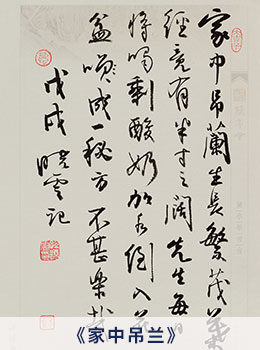 家中吊蘭生長繁茂葉
經竟有半寸之闊先生每日
將喝剩酸奶加水倒入花
盆嘆成一秘方不甚樂哉
戊戌曉雲記
《家中吊兰》